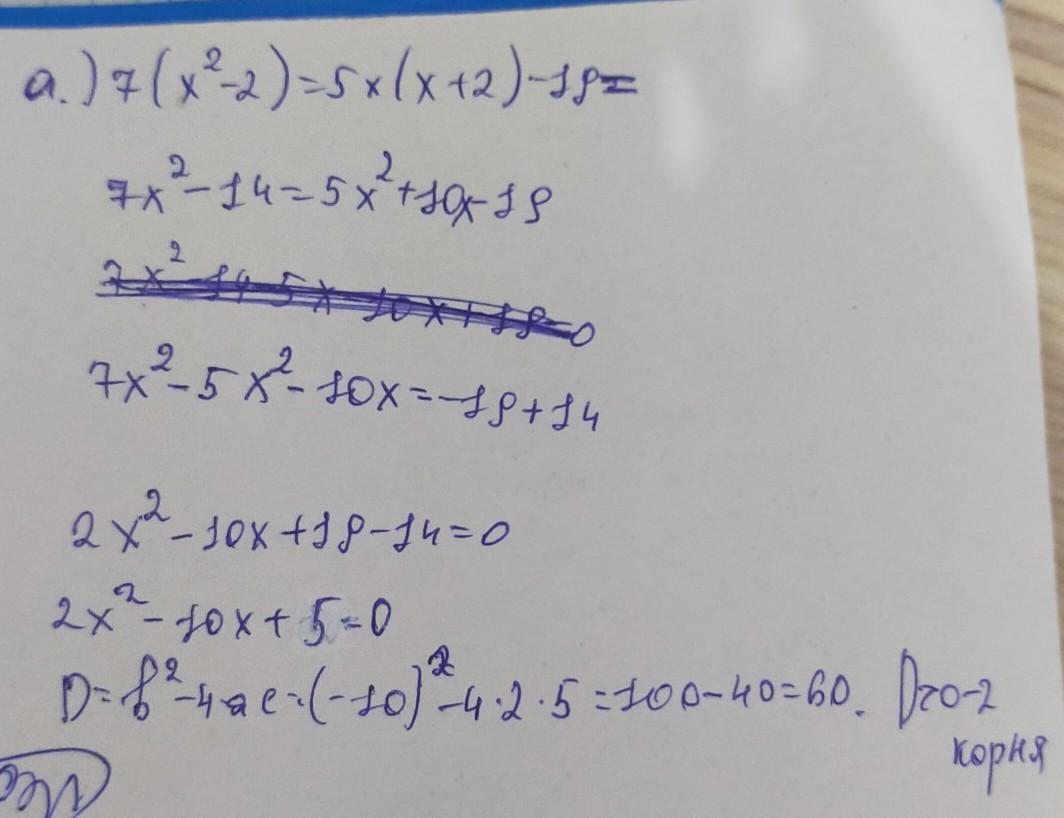 а.) 7(x²-2)=5x(x+2)-19=
7x²-14=5x²+10x-19
7x²-14-5x-10x+19=0
7x²-5x²-10x=-19+14
2x²-10x+19-14=0
2x²-10x+5=0
D=b²-4ac=(-10)²-4·2·5=100-40=60. D>0-2
корня